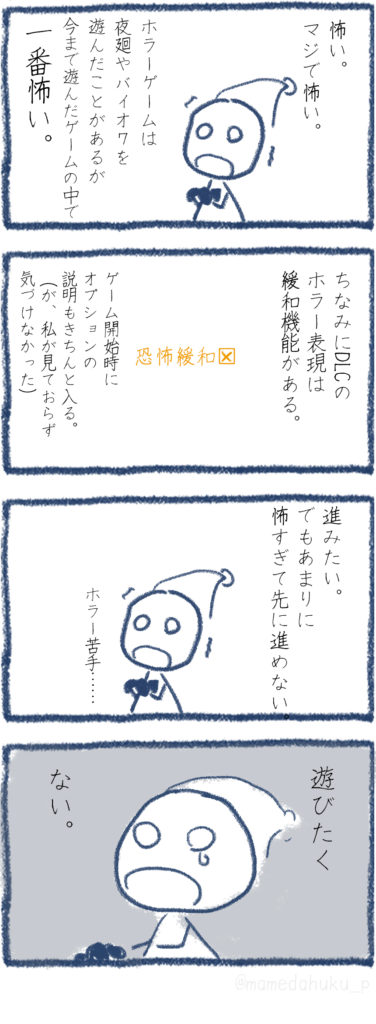 怖い。
マジで怖い。
ホラーゲームは
夜廻やバイオ7を
遊んだことがあるが
今まで遊んだゲームの中で
一番怖い。
ちなみにDLCの
ホラー表現は
緩和機能がある。
恐怖緩和☒
ゲーム開始時に
オプションの
説明もきちんと入る。
(が、私が見ておらず
気づけなかった)
進みたい。
でもあまりに
怖すぎて先に進めない。
ホラー苦手……
遊びたく
ない。
@mamedahuku_p